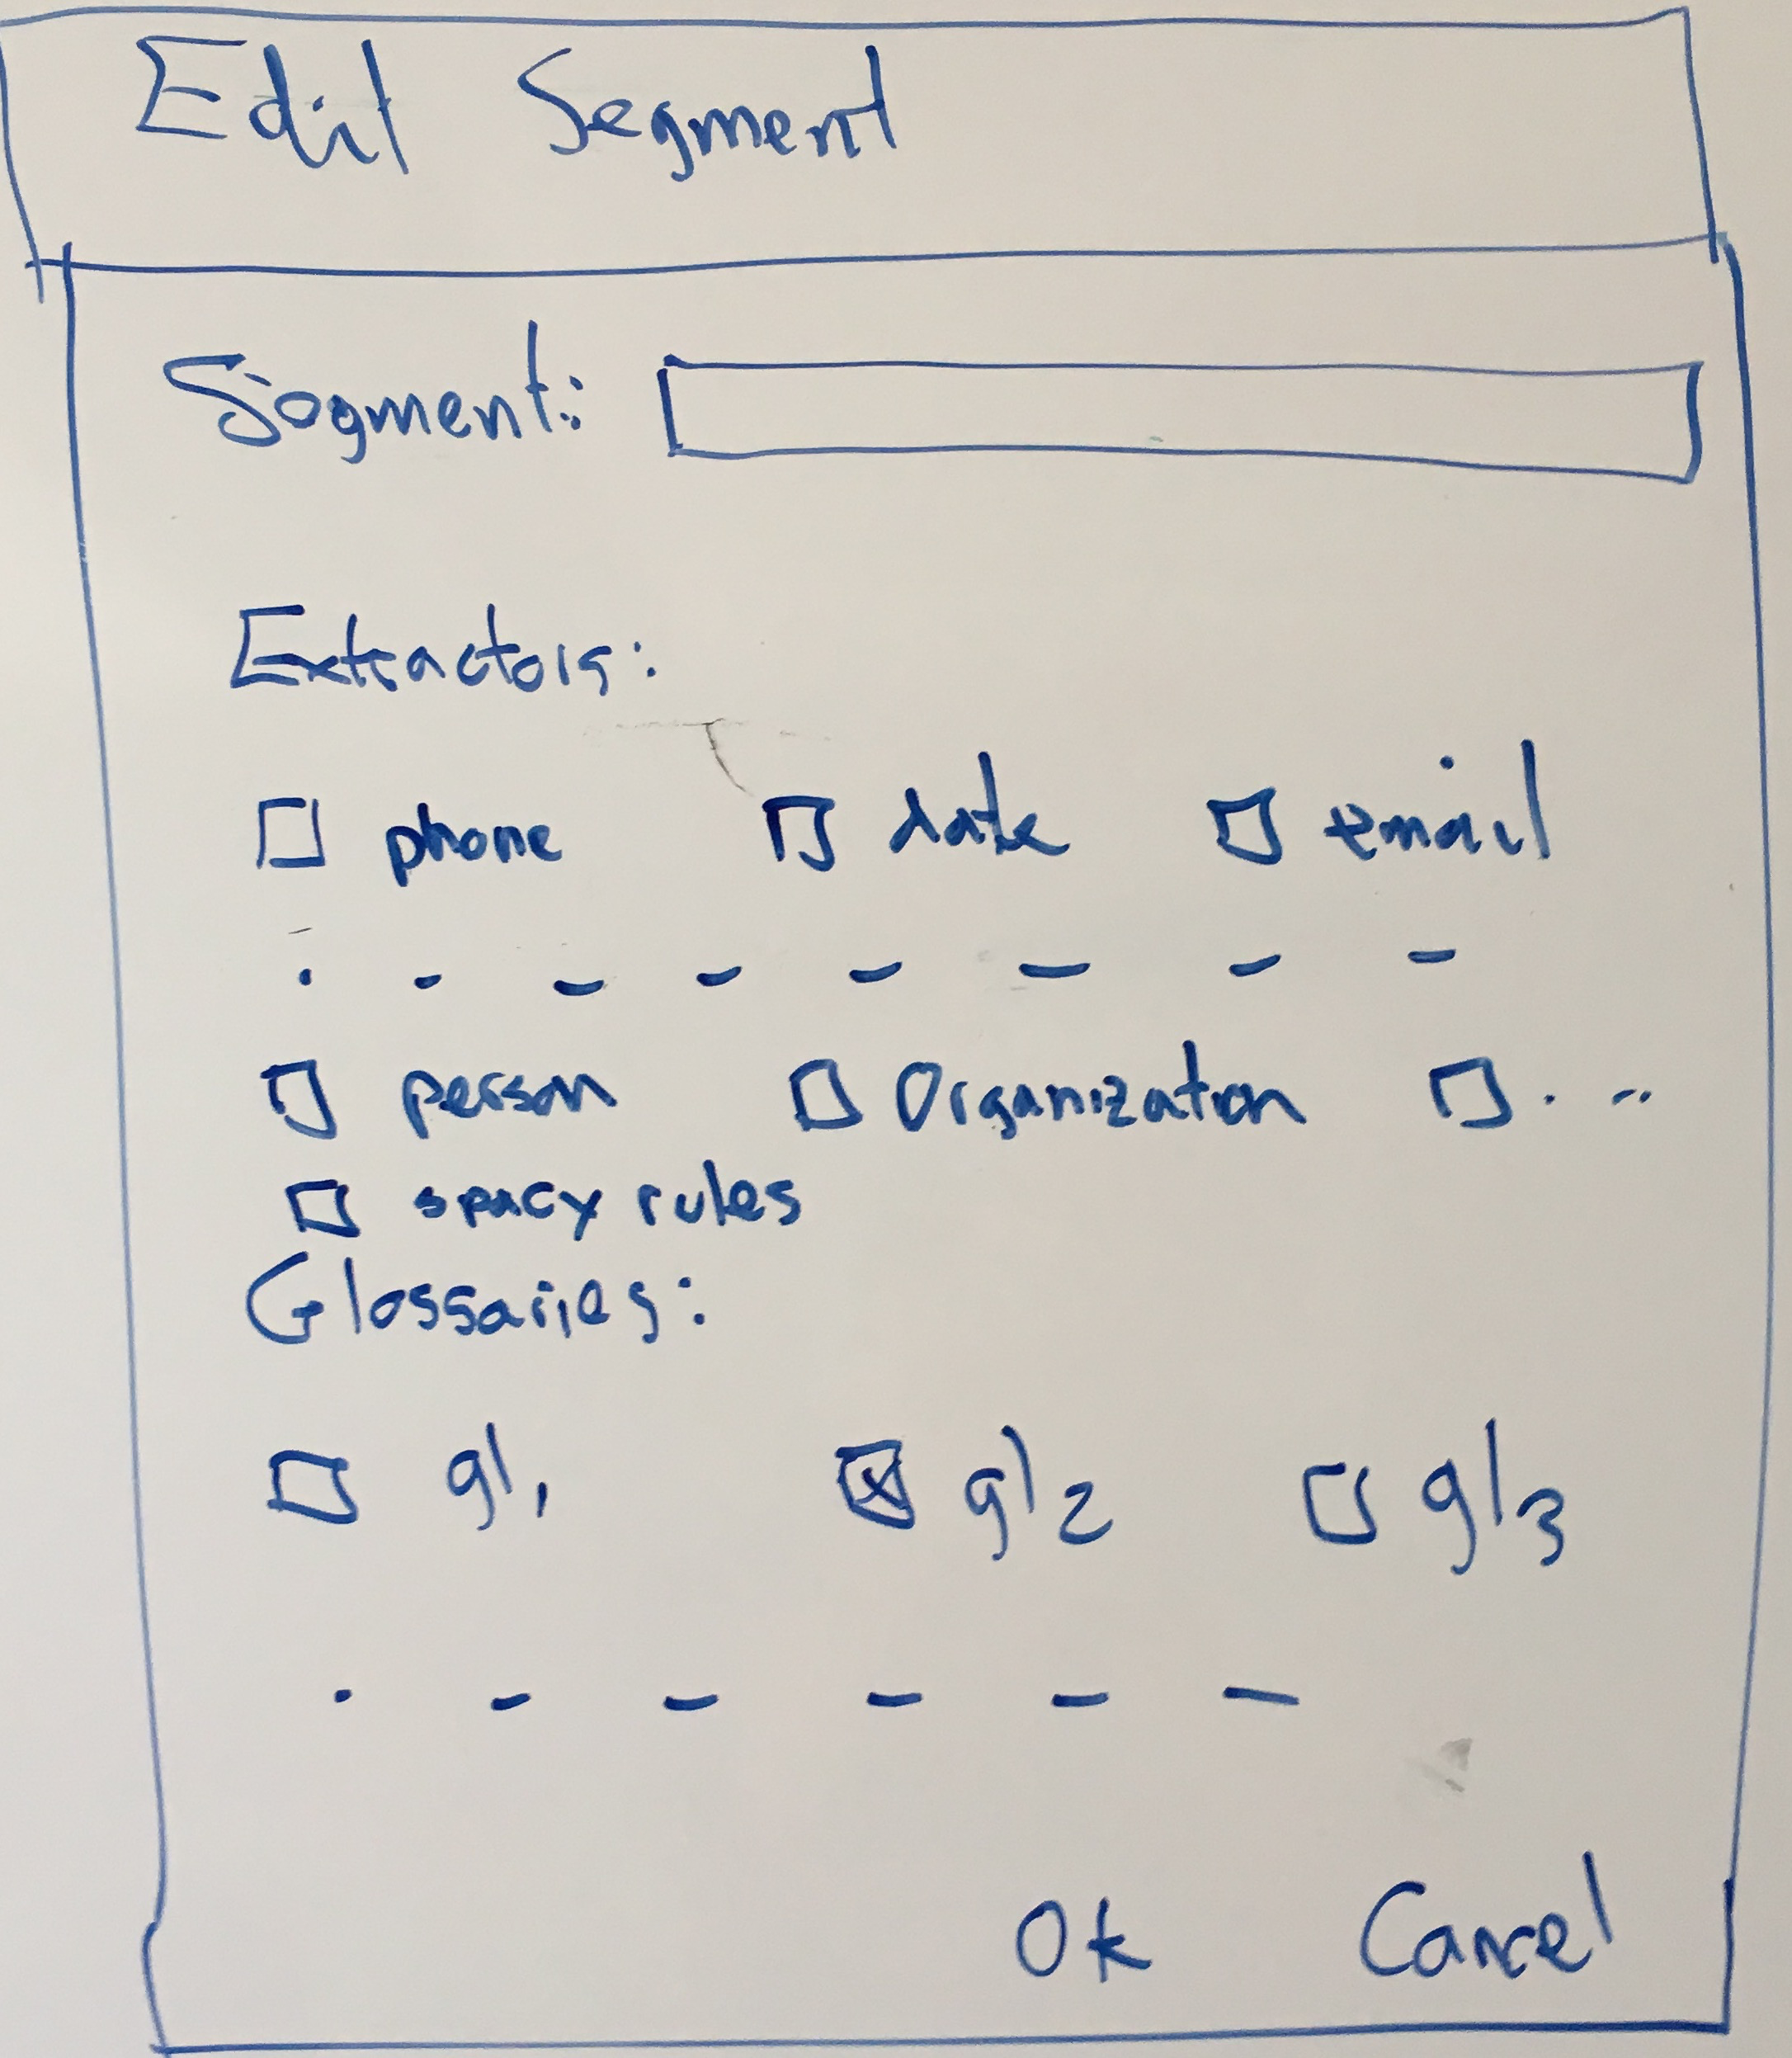 Edit Segment
Segment:
Extractors:
phone date email
person Organization ...
spacy rules
Glossaries:
gl1 gl2 gl3
Ok Cancel